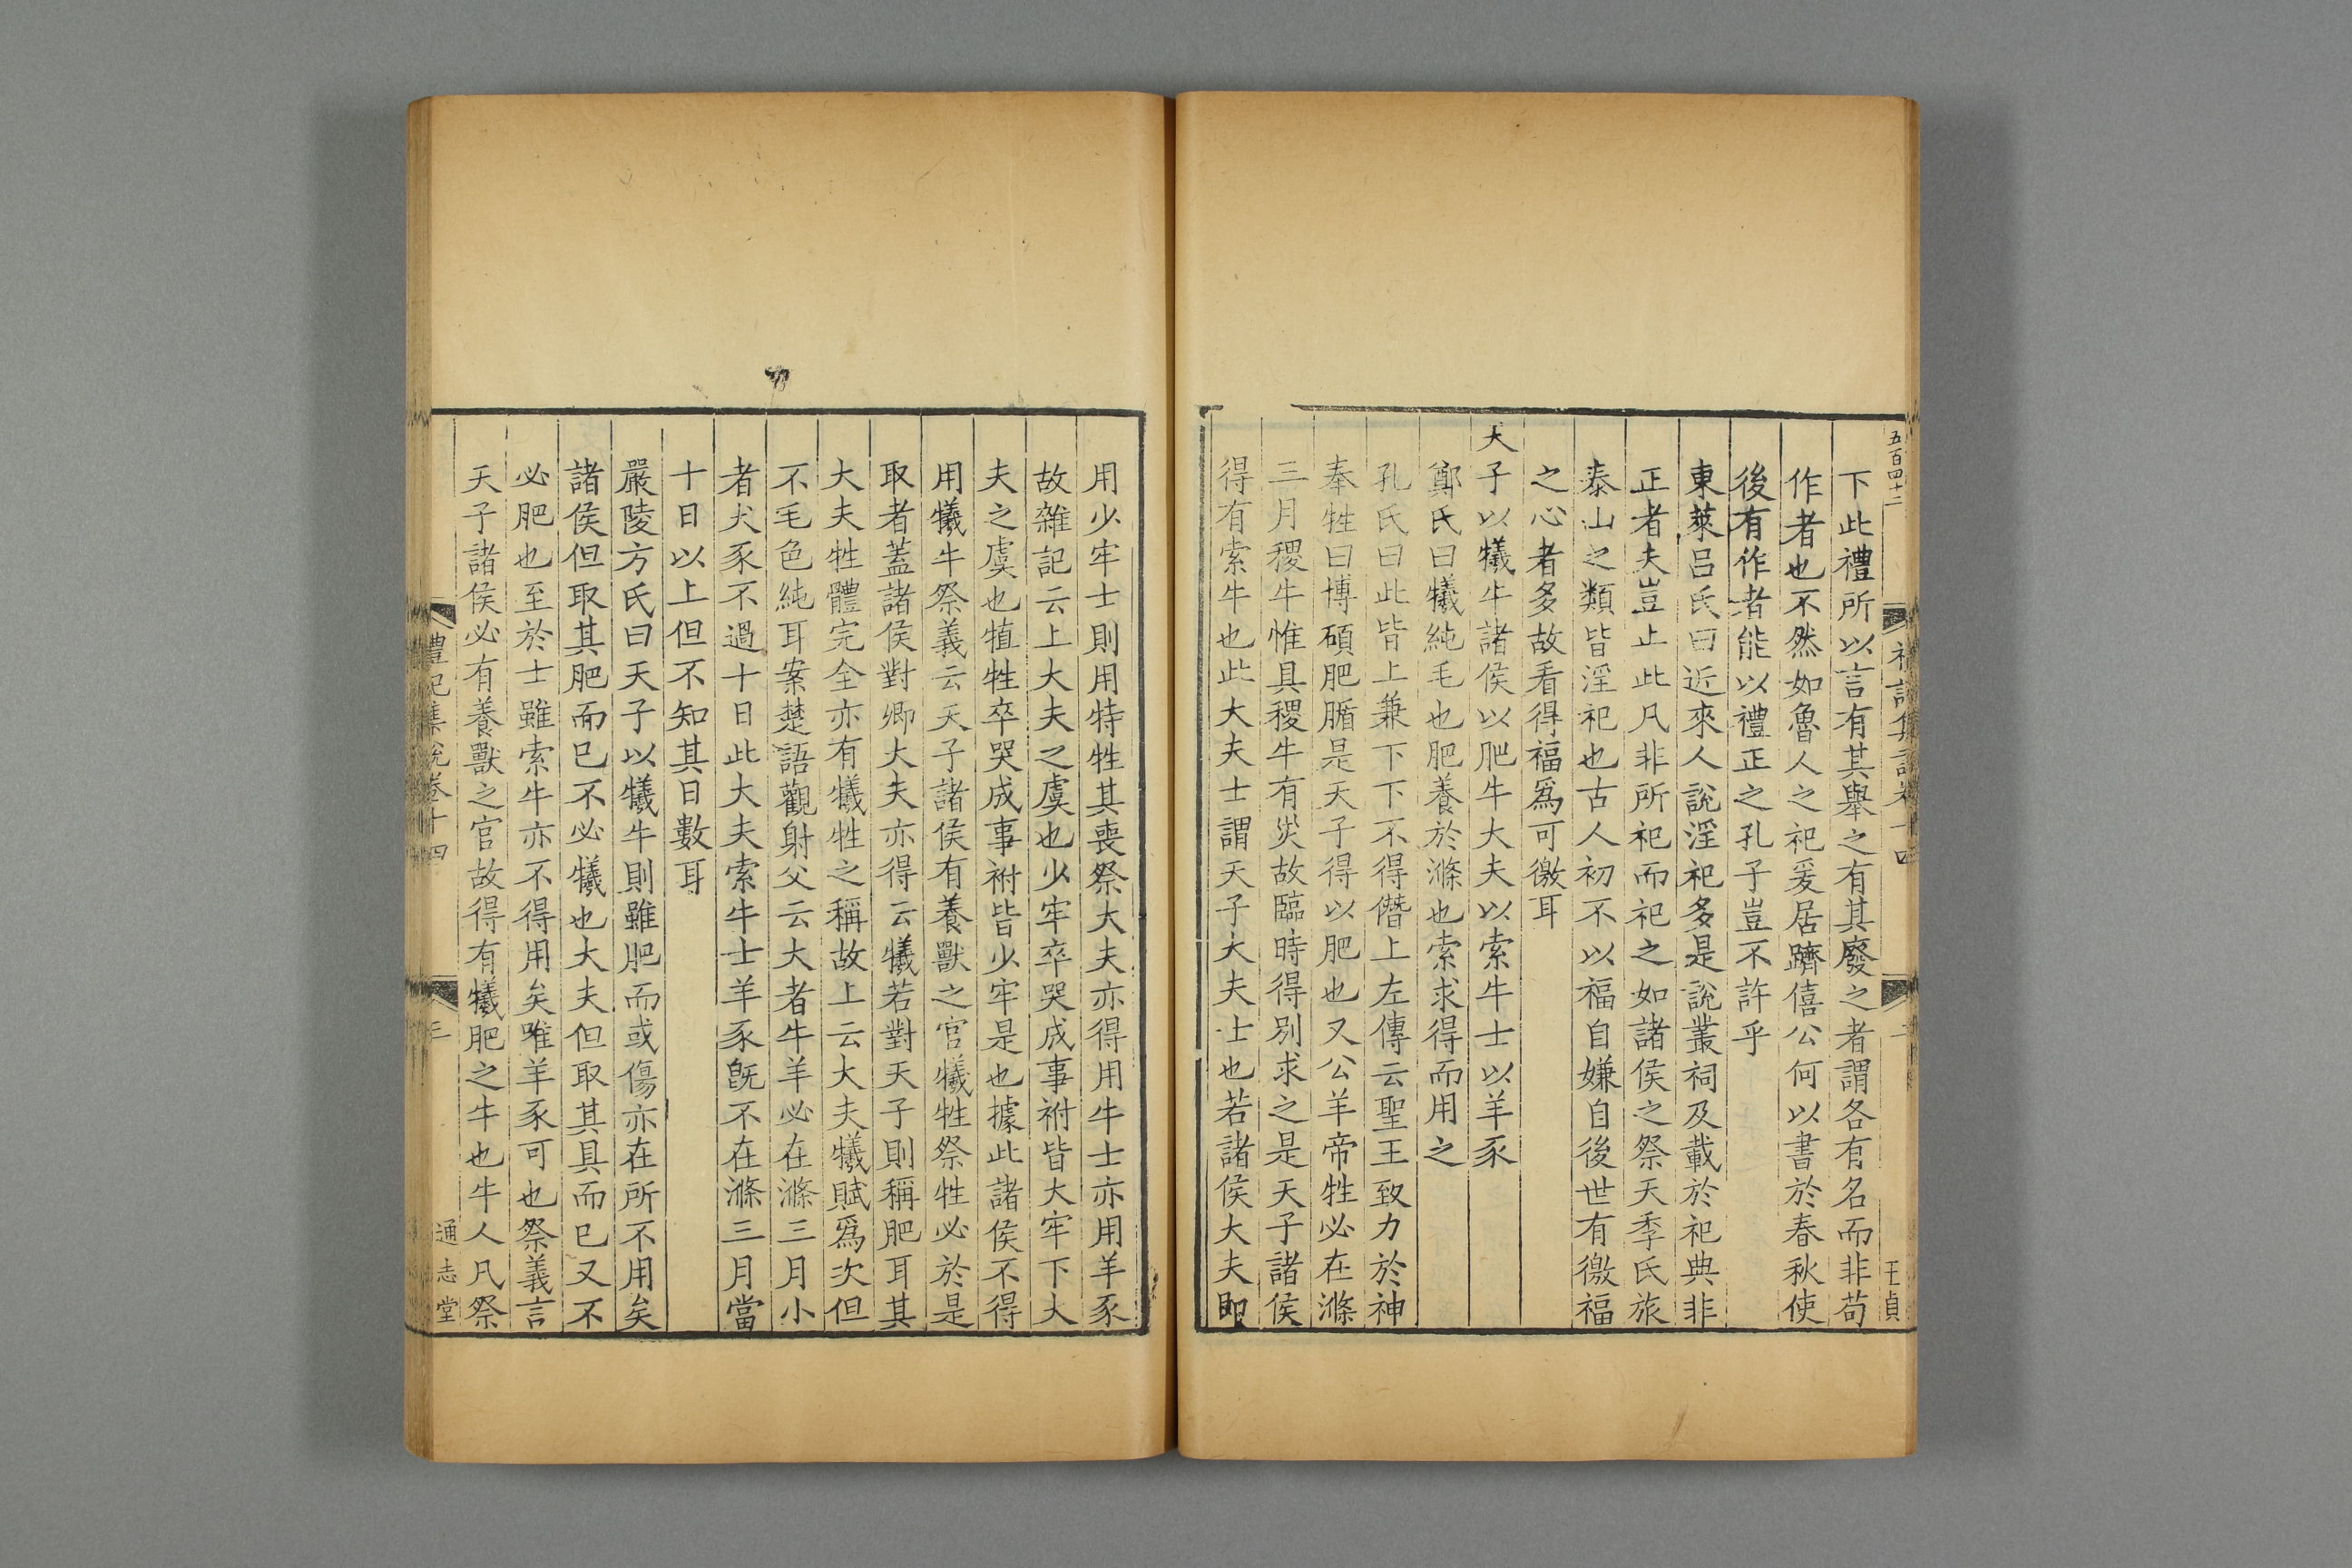 五百四十二
禮記集說卷十四
王貞
下此禮所以言有其舉之有其廢之者謂各有名而非苟
作者也不然如魯人之祀爰居躋僖公何以書於春秋使
後有作者能以禮正之孔子豈不許乎
東萊呂氏曰近來人說淫祀多是說叢祠及載於祀典非
正者夫豈止此凡非所祀而祀之如諸侯之祭天季氏旅
泰山之類皆淫祀也古人初不以福自嫌自後世有徼福
之心者多故看得福爲可徼耳
天子以犧牛諸侯以肥牛大夫以索牛士以羊豕
鄭氏曰犧純毛也肥養於滌也索求得而用之
孔氏曰此皆上兼下下不得僭上左傳云聖王致力於神
奉牲曰博碩肥腯是天子得以肥也又公羊帝牲必在滌
三月稷牛惟具稷牛有災故臨時得別求之是天子諸侯
得有索牛也此大夫士謂天子大夫士也若諸侯大夫即
用少牢士則用特牲其喪祭大夫亦得用牛士亦用羊豕
故雜記云上大夫之虞也少牢卒哭成事祔皆大牢下大
夫之虞也犆牲卒哭成事祔皆少牢是也據此諸侯不得
用犧牛祭義云天子諸侯有養獸之官犧牲祭牲必於是
取者蓋諸侯對卿大夫亦得云犧若對天子則稱肥耳其
大夫牲體完全亦有犧牲之稱故上云大夫犧賦爲次但
不毛色純耳案楚語觀射父云大者牛羊必在滌三月小
者犬豕不過十日此大夫索牛士羊豕旣不在滌三月當
十日以上但不知其日數耳
嚴陵方氏曰天子以犧牛則雖肥而或傷亦在所不用矣
諸侯但取其肥而已不必犧也大夫但取其具而已又不
必肥也至於士雖索牛亦不得用矣唯羊豕可也祭義言
天子諸侯必有養獸之官故得有犧肥之牛也牛人凡祭
禮記集說卷十四
三
通志堂